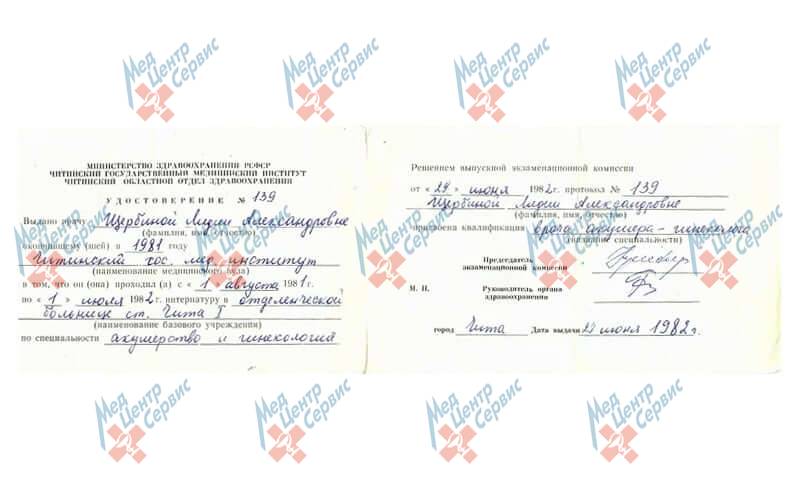 Мед Центр Сервис
Мед Центр Сервис
Мед Центр Сервис
Мед Центр Сервис
МИНИСТЕРСТВО ЗДРАВООХРАНЕНИЯ РСФСР
ЧИТИНСКИЙ ГОСУДАРСТВЕННЫЙ МЕДИЦИНСКИЙ ИНСТИТУТ
ЧИТИНСКИЙ ОБЛАСТНОЙ ОТДЕЛ ЗДРАВООХРАНЕНИЯ
УДОСТОВЕРЕНИЕ № 139
Выдано врачу Щербиной Лидии Александровне
(фамилия, имя, отчество)
окончившему (шей) в 1981 году
Читинский гос. мед. институт
(наименование медицинского вуза)
в том, что он (она) проходил (а) с « 1 » августа 1981 г.
по « 1 » июля 1982 г. интернатуру в отделенческой
больнице ст. Чита I
(наименование базового учреждения)
по специальности акушерство и гинекология
Решением выпускной экзаменационной комиссии
от « 29 » июня 1982 г. протокол № 139
Щербиной Лидии Александровне
(фамилия, имя, отчество)
присвоена квалификация врача акушера-гинеколога
(название специальности)
Председатель
экзаменационной комиссии
М. П. Руководитель органа
здравоохранения
город Чита Дата выдачи 29 июня 1982 г.
Мед Центр Сервис
Мед Центр Сервис
Мед Центр Сервис
Мед Центр Сервис